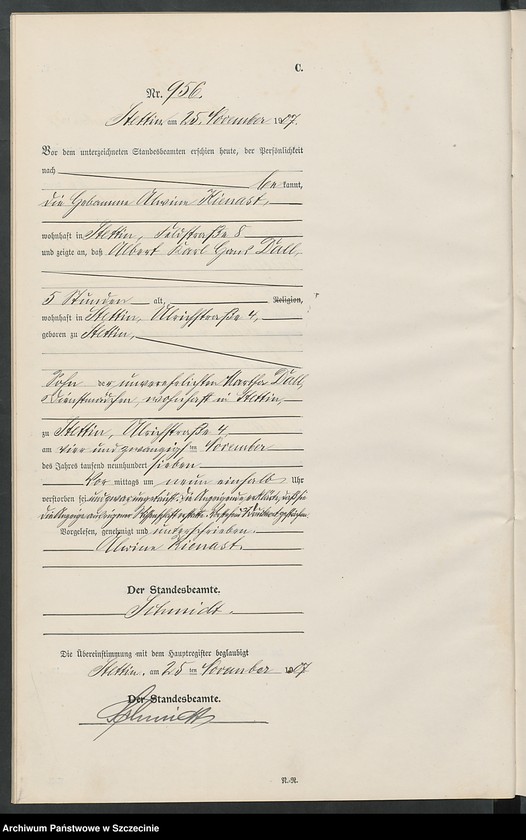 C.
Nr. 956.
Stettin, am 25. November 1907.
Vor dem unterzeichneten Standesbeamten erschien heute, der Persönlichkeit
nach
bekannt,
die Hebamme Alwine Kienast,
wohnhaft in Stettin, Feldstraße 8
und zeigte an, daß Albert Karl Hans Dall,
5 Stunden alt, Religion,
wohnhaft in Stettin, Ulrichstraße 4,
geboren zu Stettin,
Sohn der unverehelichten Martha Dall,
Dienstmädchen, wohnhaft in Stettin,
zu Stettin, Ulrichstraße 4,
am vier und zwanzigsten November
des Jahres tausend neunhundert sieben
Vor mittags um neun einhalb Uhr
verstorben sei, und zwar Die Anzeigende erklärte, daß sie
die Anzeige aus eigener Wissenschaft erstatte.
Vorgelesen, genehmigt und unterschrieben.
Alwine Kienast.
Der Standesbeamte.
Schmidt.
Die Übereinstimmung mit dem Hauptregister beglaubigt
Stettin, am 25ten November 1907
Der Standesbeamte.
Schmidt
N.-R.
Archiwum Państwowe w Szczecinie